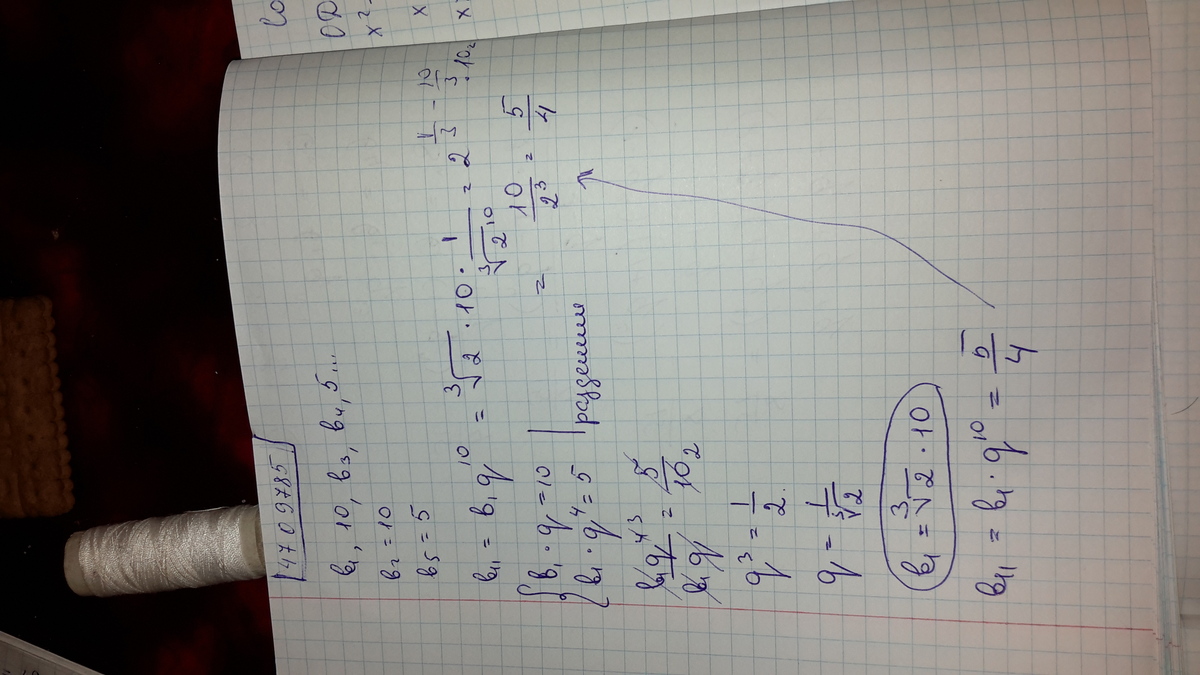 4709785
b₁, 10, b₃, b₄, 5...
b₂ = 10
b₅ = 5
b₁₁ = b₁q¹⁰ = ∛2 · 10 · 1/∛2¹⁰ = 2^(1/3 - 10/3) · 10 =
= 10/2³ = 5/4
{ b₁ · q = 10
b₁ · q⁴ = 5 | разделим
b₁q⁴³/b₁q = 5/10 2
q³ = 1/2
q = 1/∛2
b₁ = ∛2 · 10
b₁₁ = b₁ · q¹⁰ = 5/4
x
x